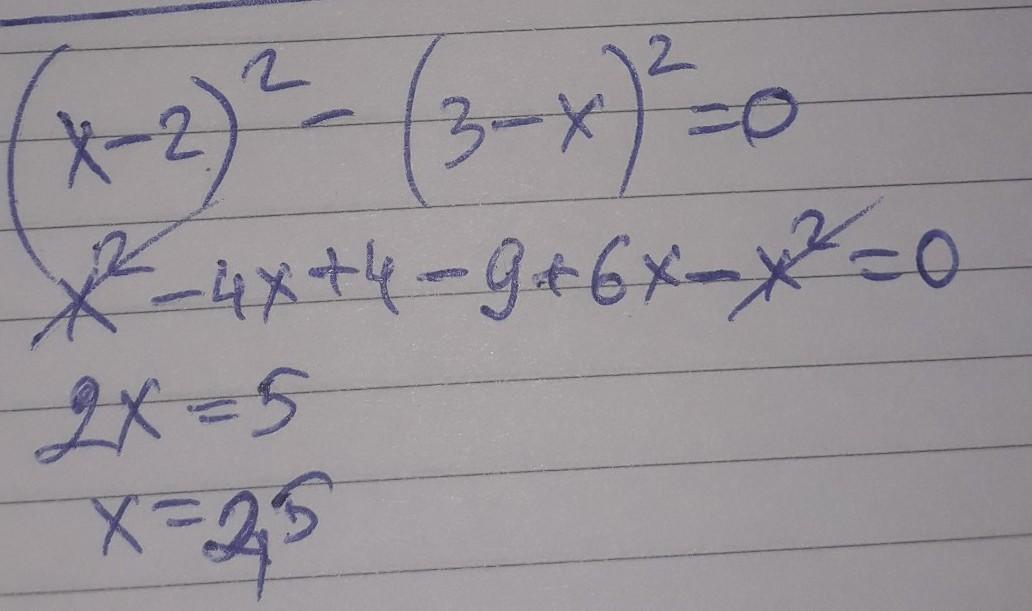 (x-2)² - (3-x)² = 0
x² - 4x + 4 - 9 + 6x - x² = 0
2x = 5
x = 2,5